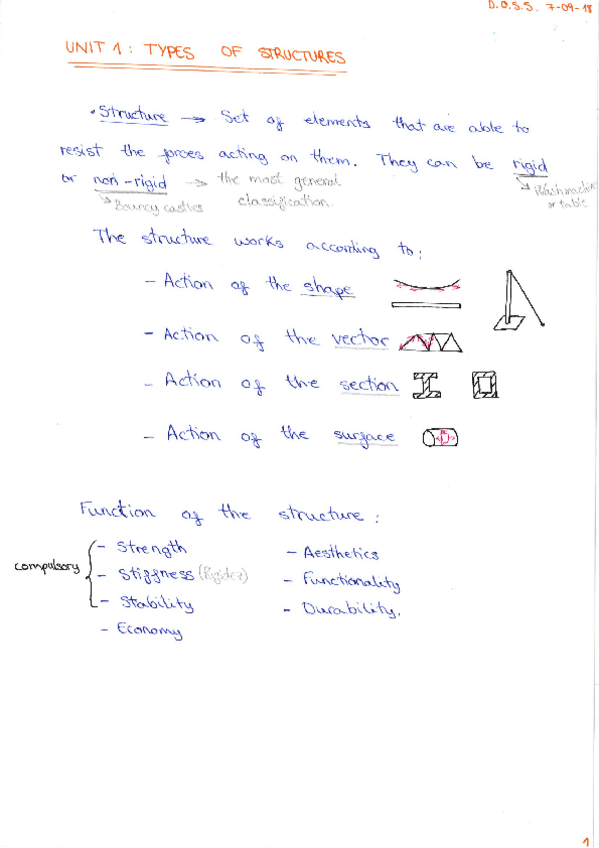 D.O.S.S. 7-09-18
UNIT 1: TYPES OF STRUCTURES
• Structure → Set of elements that are able to
resist the forces acting on them. They can be rigid
or non-rigid → the most general
classification
Bouncy castles
or table
The structure works according to:
- Action of the shape
- Action of the vector
- Action of the section
- Action of the surface
Function of the structure:
compulsory
- Strength
- Stiffness (Rigidez)
- Stability
- Economy
- Aesthetics
- Functionality
- Durability.
1